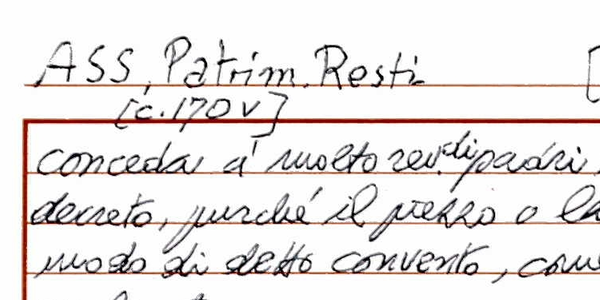 ASS, Patrim. Resti
[c. 170 v]
conceda a' molto rev.di padri
decreto, purché il prezzo o
modo di detto convento,